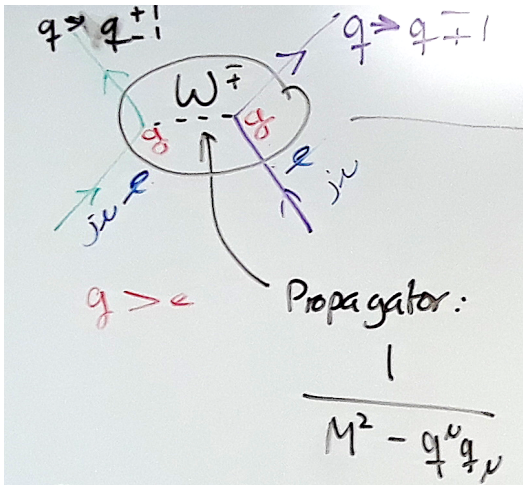 q → q±1
q → q∓1
W∓
g
g
jμ e
e jμ
g > e
Propagator:
1
M² - qᵘqᵤ